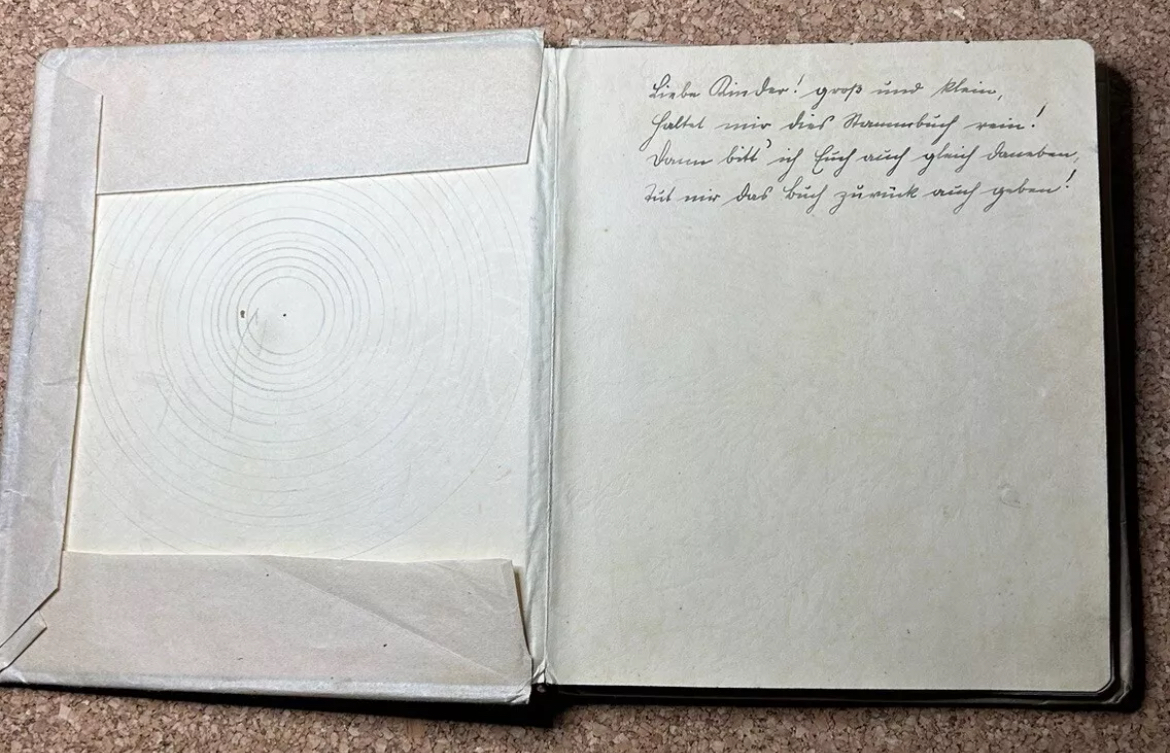 Liebe Kinder! groß und klein,
Haltet mir dies Stammbuch rein!
Dann bitt' ich Euch auch gleich daneben,
Tut mir das Buch zurück auch geben!